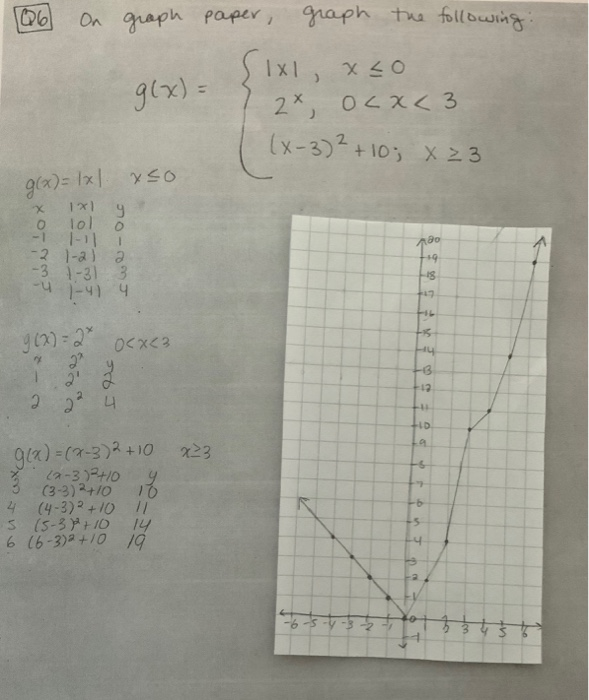 Q6 On graph paper, graph the following:
g(x) = { |x|, x ≤ 0
2^x, 0 < x < 3
(x-3)² + 10; x ≥ 3
g(x) = |x| x ≤ 0
x |x| y
0 |0| 0
-1 |-1| 1
-2 |-2| 2
-3 |-3| 3
-4 |-4| 4
g(x) = 2^x 0<x<3
x 2^x y
1 2^1 2
2 2^2 4
g(x) = (x-3)² + 10 x≥3
x (x-3)²+10 y
3 (3-3)²+10 10
4 (4-3)²+10 11
5 (5-3)²+10 14
6 (6-3)²+10 19
20
19
18
17
16
15
14
13
12
11
10
9
8
7
6
5
4
3
2
1
-6 -5 -4 -3 -2 -1 0 1 2 3 4 5 6
-1